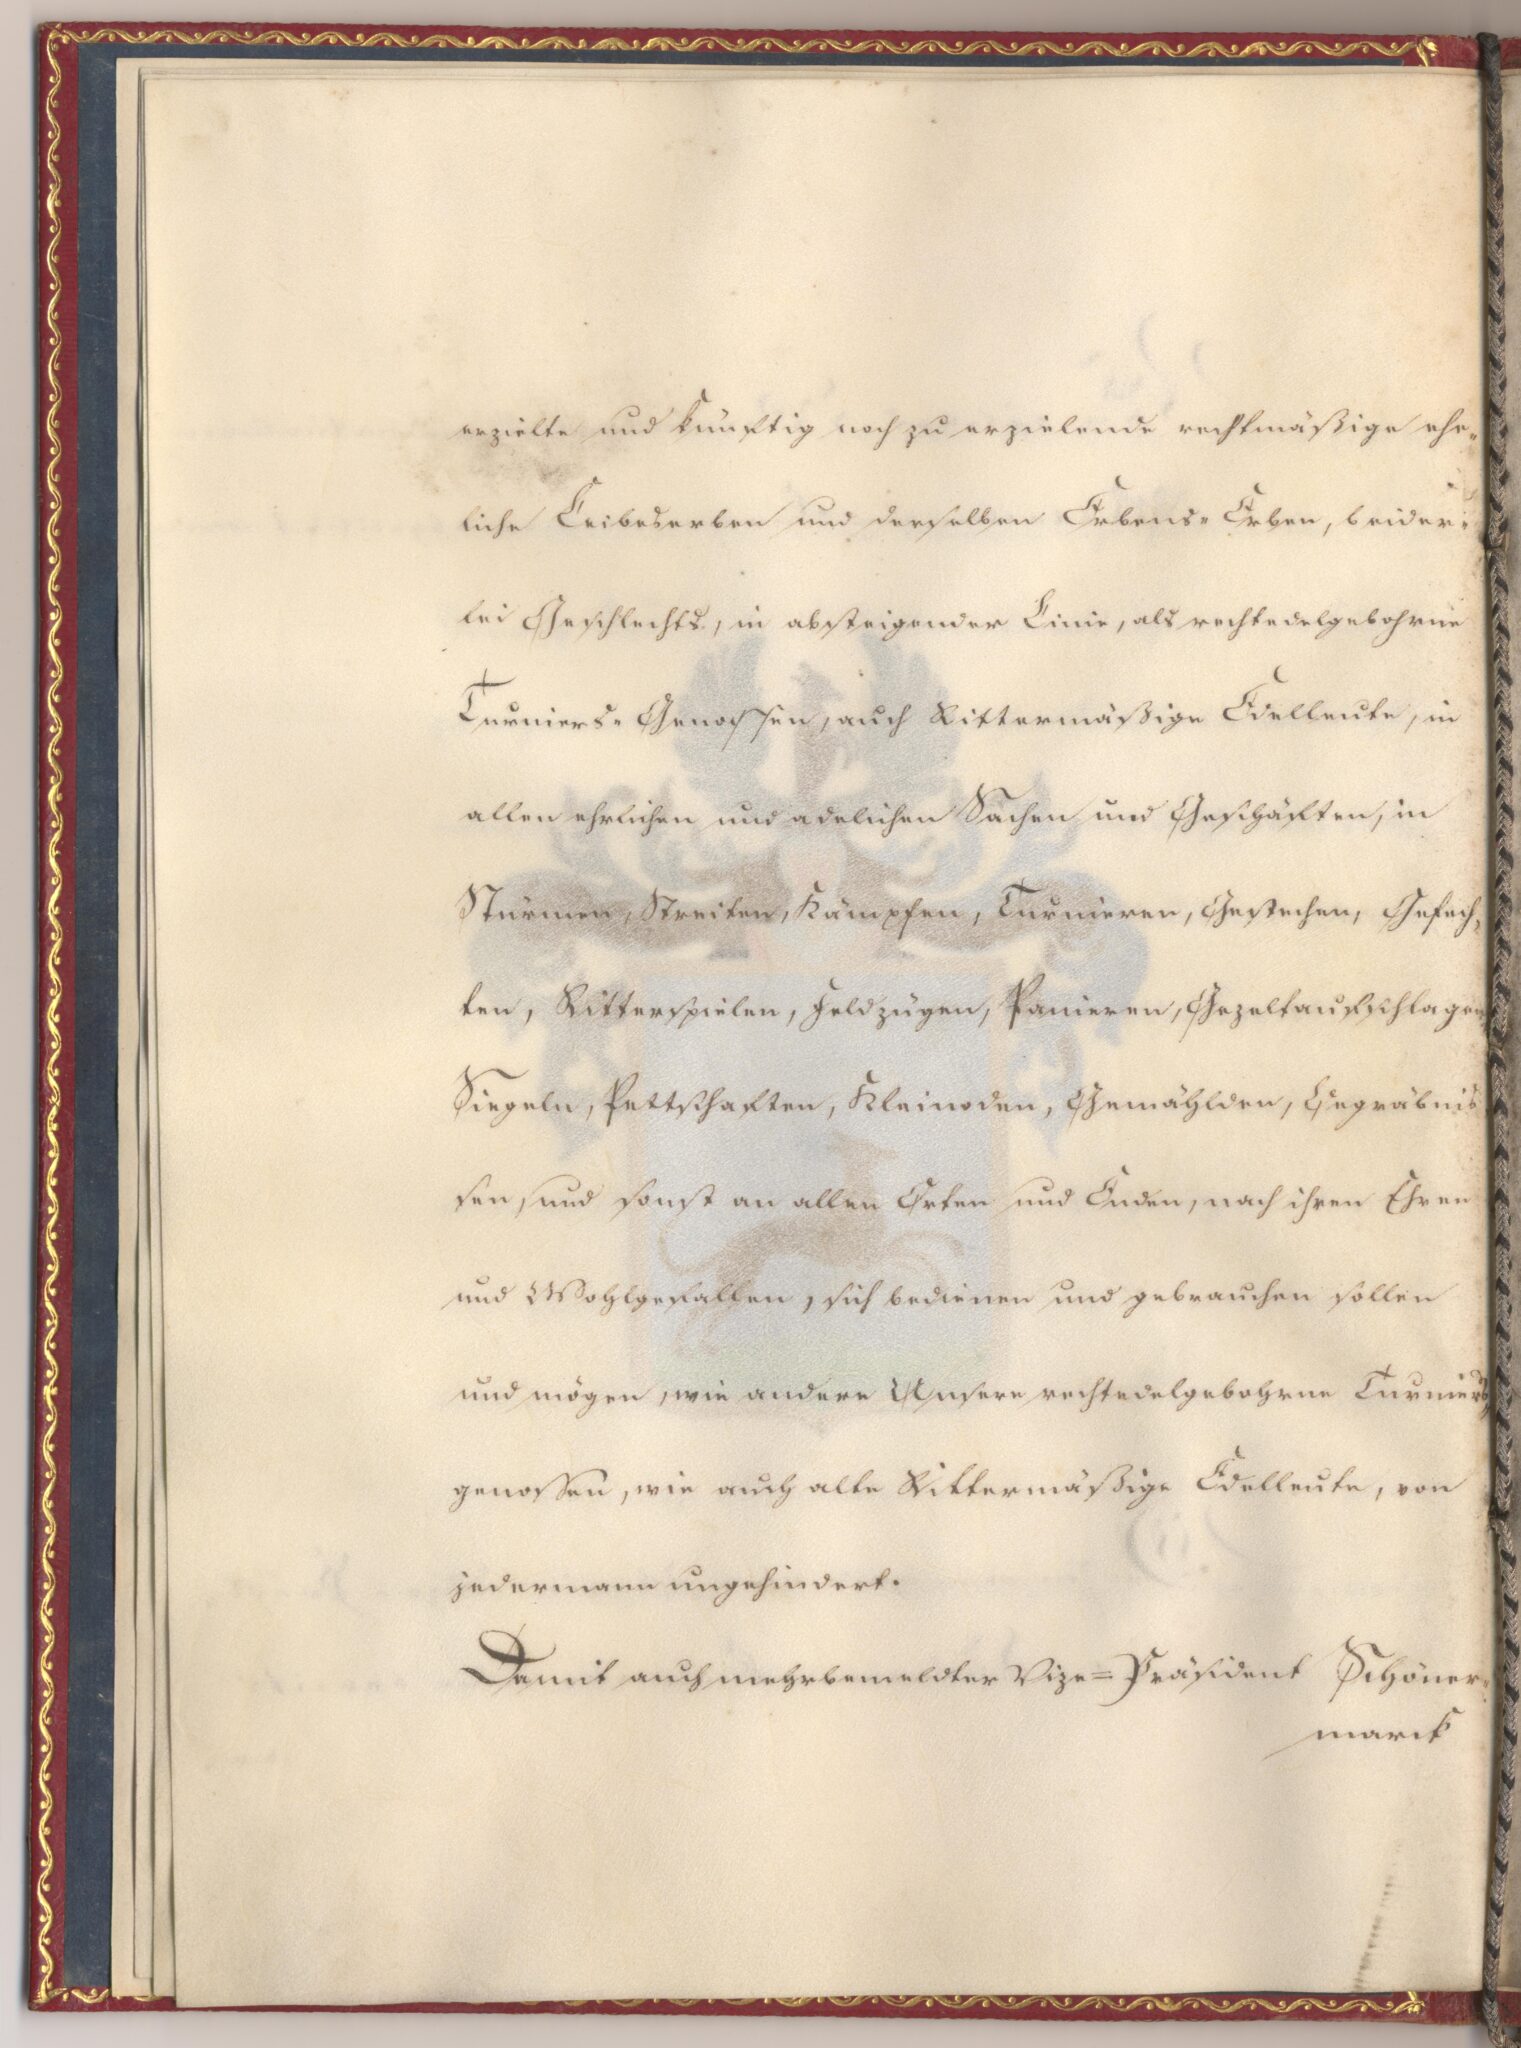 erzielte und künftig noch zu erzielende rechtmäßige ehe=
liche Leibeserben und derselben Erbens= Erben, beider=
lei Geschlechts, in absteigender Linie, als rechtedelgebohrne
Turniers= Genossen, auch Rittermäßige Edelleute, in
allen ehrlichen und adelichen Sachen und Geschäften, in
Stürmen, Streiten, Kämpfen, Turnieren, Gestechen, Gefech=
ten, Ritterspielen, Feldzügen, Panieren, Gezeltaufschlagen
Siegeln, Pettschaften, Kleinoden, Gemählden, Begräbnis
sen, und sonst an allen Orten und Enden, nach ihren Ehren
und Wohlgefallen, sich bedienen und gebrauchen sollen
und mögen, wie andere Unsere rechtedelgebohrne Turniers
genossen, wie auch alte Rittermäßige Edelleute, von
jedermann ungehindert.
Damit auch mehrbemeldter Vize= Präsident Schöner=
marck